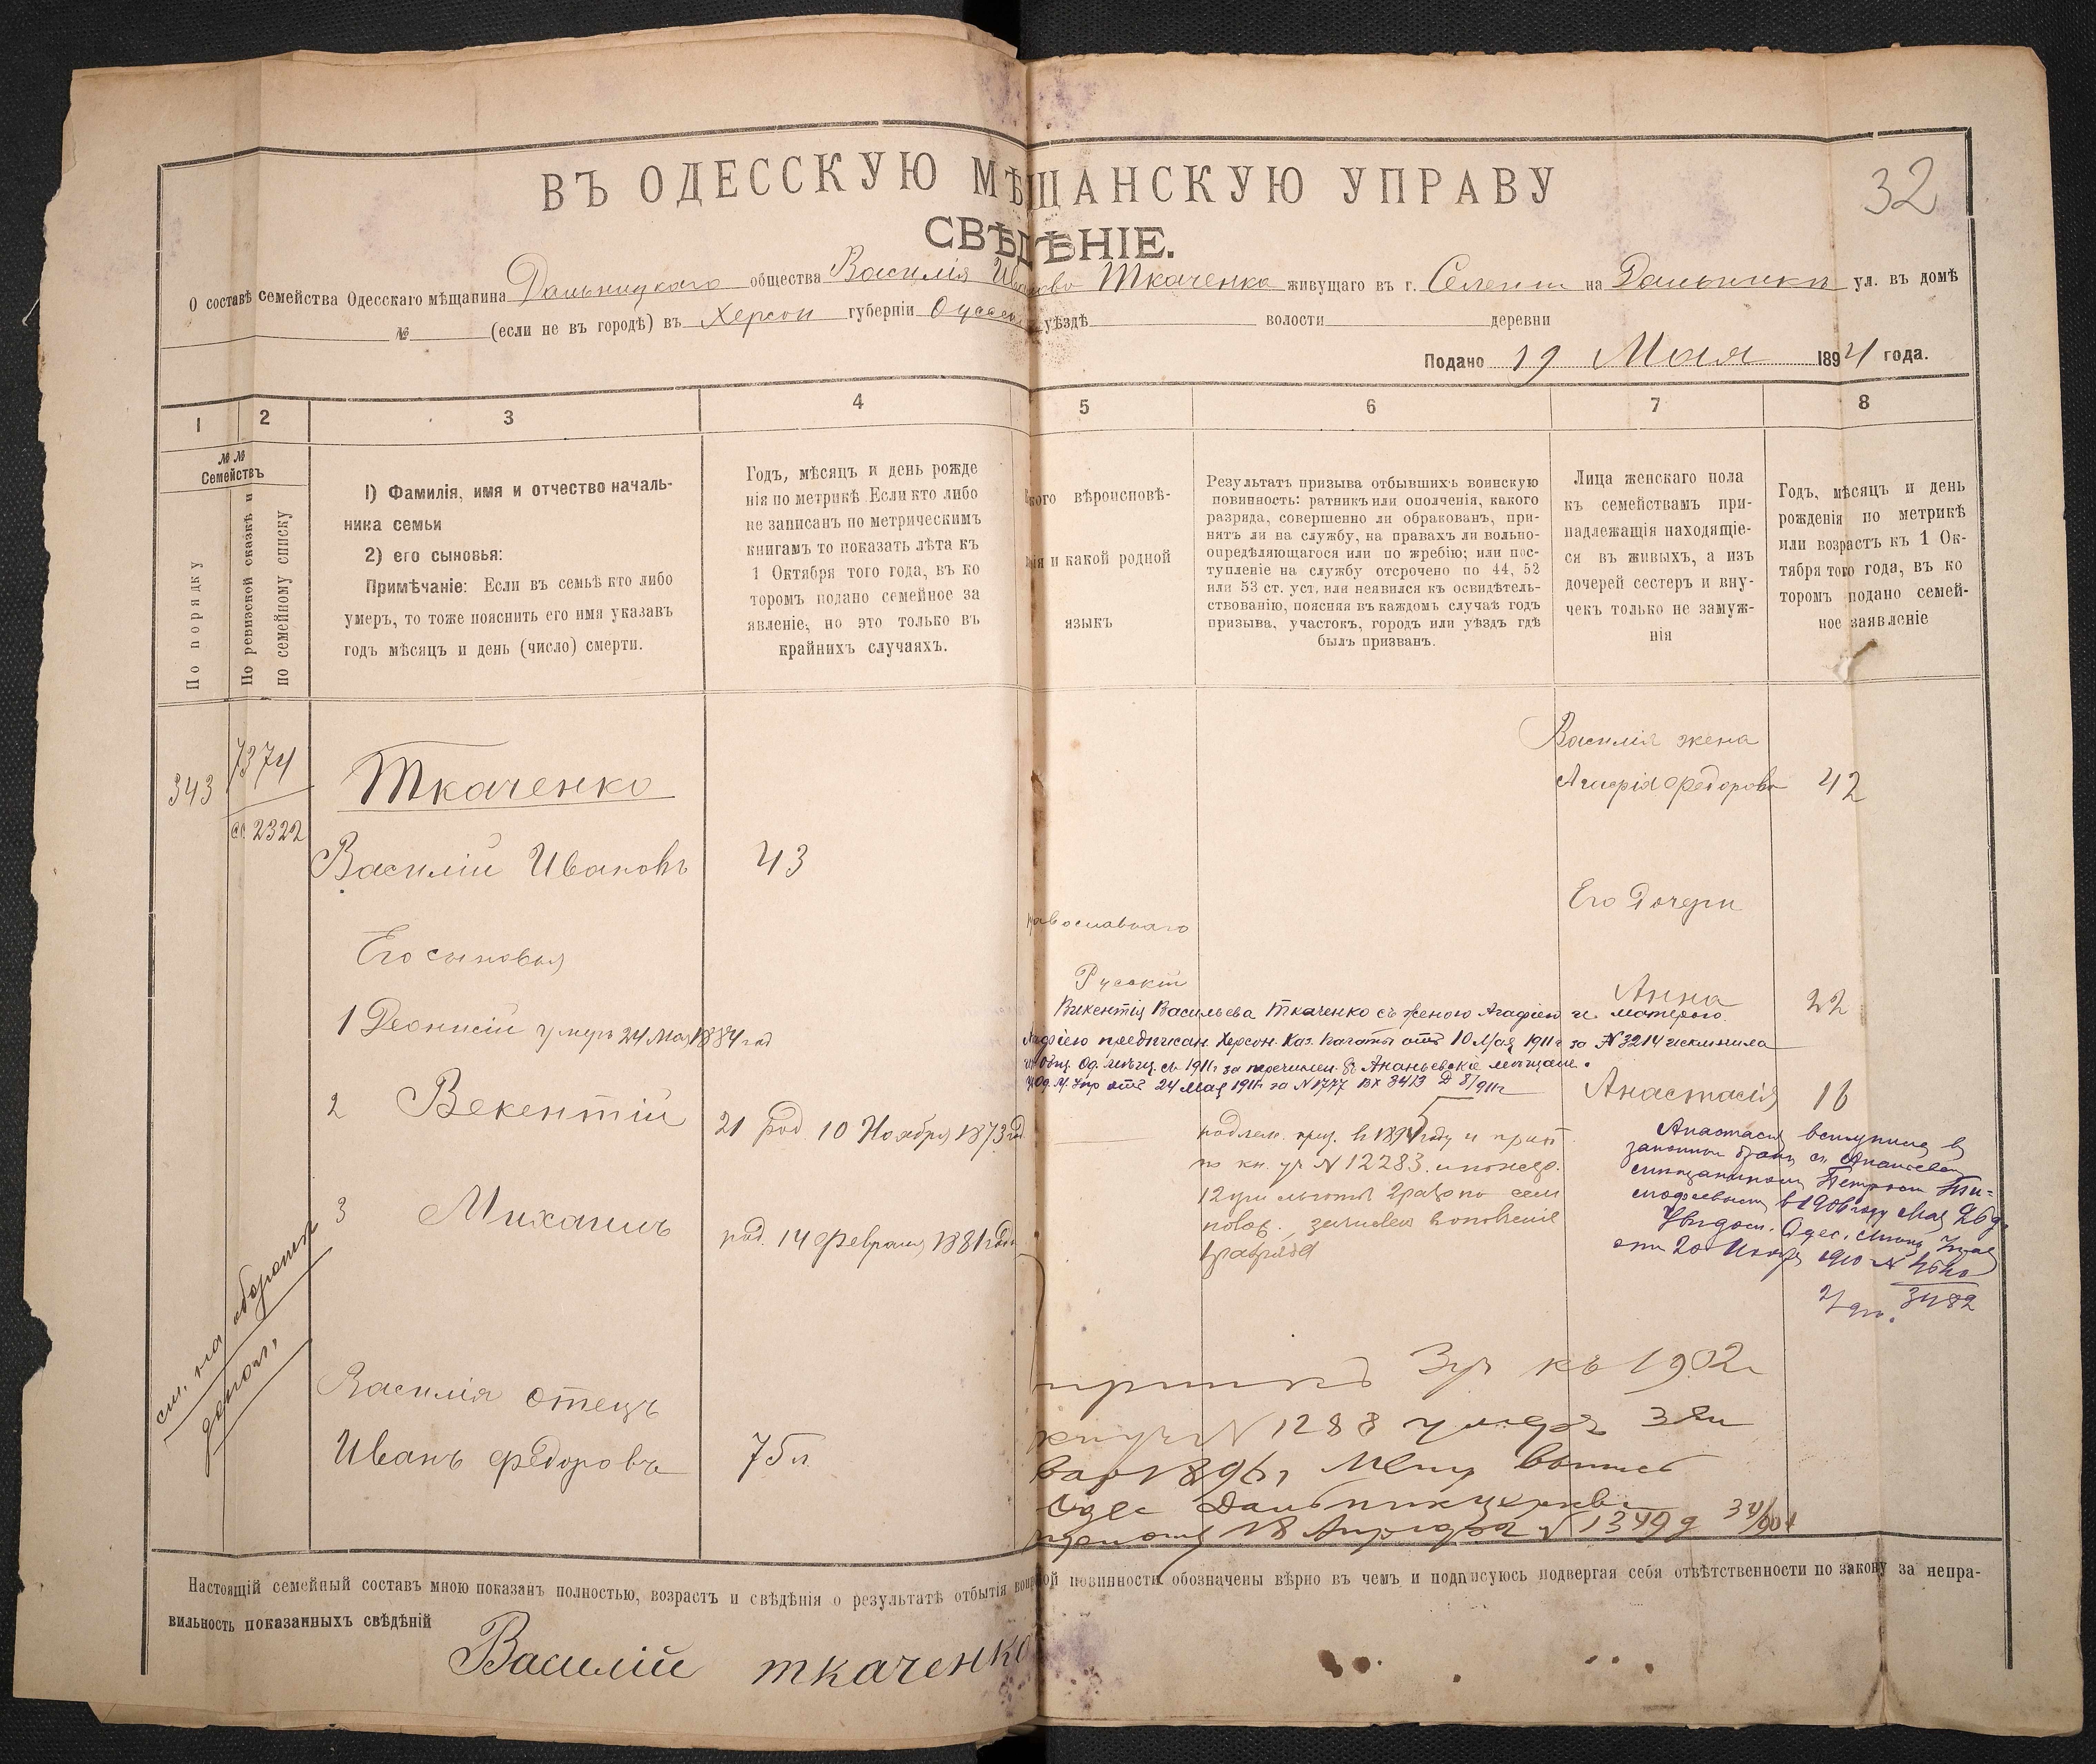 32
ВЪ ОДЕССКУЮ МѢЩАНСКУЮ УПРАВУ
СВѢДѢНІЕ.
О составѣ семейства Одесскаго мѣщанина Дальницкаго общества Василія Иванова Ткаченко живущаго въ г. Селеніи на Дальникъ ул. въ домѣ
№ (если не въ городѣ) въ Херсон губерніи Одесск уѣздѣ волости деревни
Подано 19 Мая 1894 года.
1 2 3 4 5 6 7 8
№ №
Семействъ
По порядку
По ревизской сказкѣ и
по семейному списку
1) Фамилія, имя и отчество началь-
ника семьи
2) его сыновья:
Примѣчаніе: Если въ семьѣ кто либо
умеръ, то тоже пояснить его имя указавъ
годъ мѣсяцъ и день (число) смерти.
Годъ, мѣсяцъ и день рожде
нія по метрикѣ. Если кто либо
не записанъ по метрическимъ
книгамъ то показать лѣта къ
1 Октября того года, въ ко
торомъ подано семейное за
явленіе, но это только въ
крайнихъ случаяхъ.
кого вѣроисповѣ-
нія и какой родной
языкъ
Результатъ призыва отбывшихъ воинскую
повинность: ратникъ или ополченія, какого
разряда, совершенно ли обракованъ, при-
нятъ ли на службу, на правахъ ли вольно-
опредѣляющагося или по жребію; или пос-
тупленіе на службу отсрочено по 44, 52
или 53 ст. уст. или неявился къ освидѣтель-
ствованію, поясняя въ каждомъ случаѣ годъ
призыва, участокъ, городъ или уѣздъ гдѣ
былъ призванъ.
Лица женскаго пола
къ семействамъ при-
надлежащія находящіе-
ся въ живыхъ, а изъ
дочерей сестеръ и вну-
чекъ только не замуж-
нія
Годъ, мѣсяцъ и день
рожденія по метрикѣ
или возрастъ къ 1 Ок-
тября того года, въ ко
торомъ подано семей-
ное заявленіе
343
7374
2322
Ткаченко
Василій Ивановъ 43
Василія жена
Агафія Федорова 42
Его дочери
православнаго
Русскій
Его сыновья
Анна 22
1 Деонисій умеръ 24 Мая 1884 год
Викентія Васильева Ткаченко съ женою Агафіею и матерью
Агафіею предписан. Херсон. Каз. Палаты отъ 10 Мая 1911 г за № 3214 исключила
Общ. Од. мѣщ. съ 1911 г за перечислен. въ Ананьевскіе мѣщане.
Од. М. Упр отъ 24 Мая 1911 г за № 1777 вх 3413 Д 8/911 г
Анастасія 16
2 Векентій 21 род. 10 Ноября 1873 год
подлеж. приз. въ 1894 году и
по кн. № 12283.
12 при льготѣ 2 разр по сем
полож. зачислен в ополченіе
1 разряда
Анастасія вступила въ
законный бракъ съ Ананьевск
мещаниномъ Петромъ Ти-
мофеевымъ в 1906 году Мая 26 дн
отъ 20 1910 №
3482
3 Михаилъ род. 14 февраля 1881 года
см. на оборотѣ
дополн.
Василія отецъ
Иванъ Федоровъ 75 л.
къ 1902 г
№ 1288 умеръ 3 Ян
варя 1896 г,
Одес Дальник церкви
18 Апрѣля № 1349
Настоящій семейный составъ мною показанъ полностью, возрастъ и свѣдѣнія о результатѣ отбытія воинской повинности обозначены вѣрно въ чемъ и подписуюсь подвергая себя отвѣтственности по закону за непра-
вильность показанныхъ свѣдѣній
Василій ткаченко